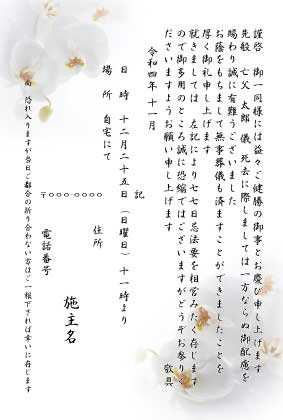 謹啓　御一同様には益々ご健勝の御事とお慶び申し上げます
先般　亡父　太郎　儀　死去に際しましては一方ならぬ御配慮を
賜わり誠に有難うございました
お蔭をもちまして無事葬儀も済ますことができましたことを
厚く御礼申し上げます
就きましては　左記により七七日忌法要を相営みたく存じます
ので御多用のところ誠に恐縮ではございますがどうぞお参り
くださいますようお願い申し上げます
敬具
令和四年十一月
記
日　時　十二月二十五日（日曜日）十一時より
場　所　自宅にて
〒○○○-○○○○
住所
施主名
電話番号
尚　恐れ入りますが当日ご都合の折り合わない方はご一報下されば幸いに存じます